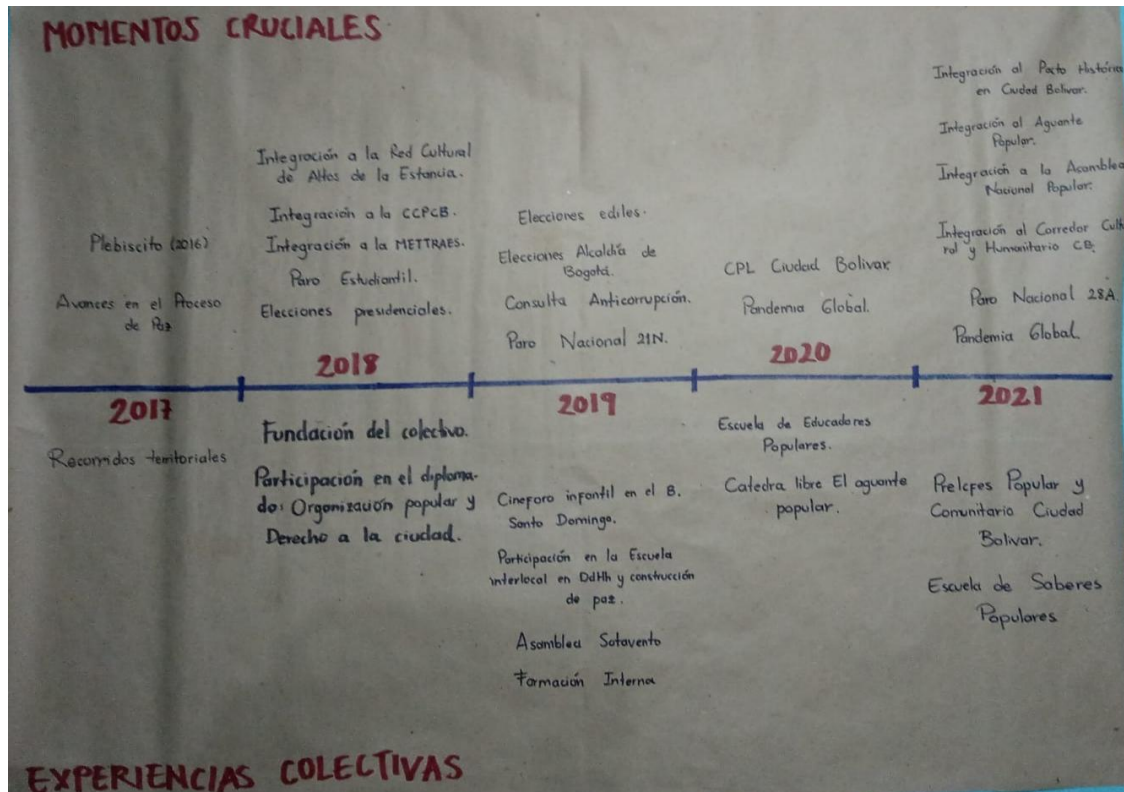 MOMENTOS CRUCIALES
Plebiscito (2016)
Avances en el Proceso
de Paz
2017
Recorridos territoriales
Integración a la Red Cultural
de Altos de la Estancia.
Integración a la CCPCB.
Integración a la METTRAES.
Paro Estudiantil.
Elecciones presidenciales.
2018
Fundación del colectivo.
Participación en el diploma-
do: Organización popular y
Derecho a la ciudad.
Elecciones ediles.
Elecciones Alcaldía de
Bogotá.
Consulta Anticorrupción.
Paro Nacional 21N.
2019
Cineforo infantil en el B.
Santo Domingo.
Participación en la Escuela
interlocal en DdHh y construcción
de paz.
Asamblea Sotavento
Formación Interna
CPL Ciudad Bolivar.
Pandemia Global.
2020
Escuela de Educadores
Populares.
Catedra libre El aguante
popular.
Integración al Pacto Histórico
en Ciudad Bolivar.
Integración al Aguante
Popular.
Integración a la Asamblea
Nacional Popular.
Integración al Corredor Cultu
ral y Humanitario CB.
Paro Nacional 28A.
Pandemia Global.
2021
PreIcfes Popular y
Comunitario Ciudad
Bolivar.
Escuela de Saberes
Populares
EXPERIENCIAS COLECTIVAS